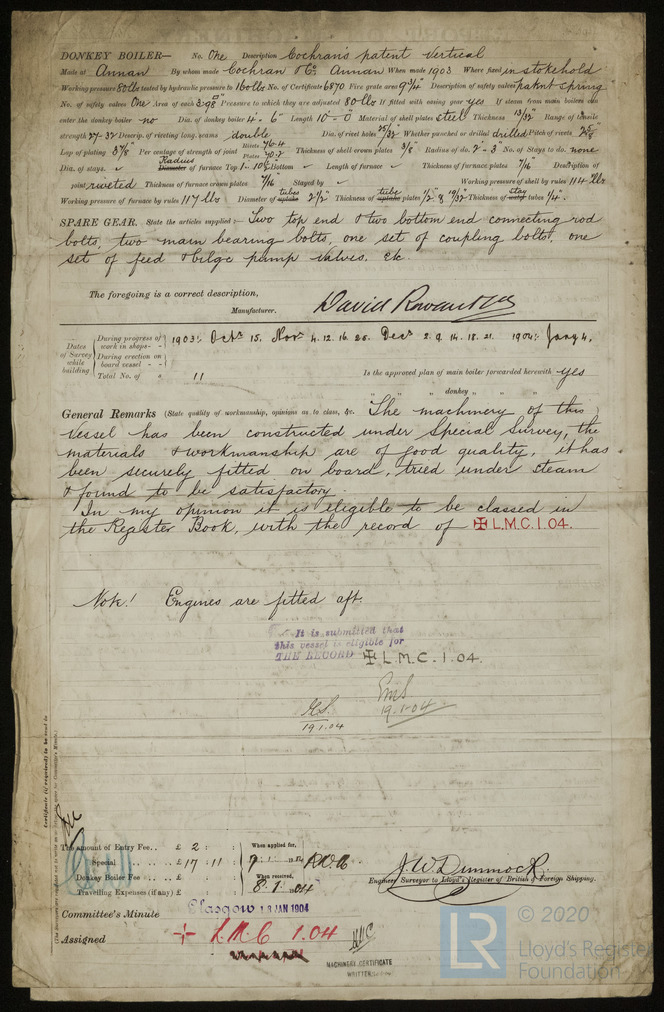 DONKEY BOILER— No. One Description Cochran's patent Vertical
Made at Annan By whom made Cochran & Co. Annan When made 1903 Where fixed in stokehold
Working pressure 80 lbs tested by hydraulic pressure to 160 lbs No. of Certificate 6870 Fire grate area 9 3/4 Description of safety valves patent spring
No. of safety valves One Area of each 3.98 Pressure to which they are adjusted 80 lbs If fitted with easing gear yes If steam from main boilers can
enter the donkey boiler no Dia. of donkey boiler 4-6" Length 10-0" Material of shell plates steel Thickness 13/32" Range of tensile
strength 27-32 Descrip. of riveting long. seams double Dia. of rivet holes 25/32" Whether punched or drilled drilled Pitch of rivets
Lap of plating 3 7/8" Per centage of strength of joint Rivets 76.4 Plates 70.2 Thickness of shell crown plates 3/8" Radius of do. 2-3" No. of Stays to do. none
Dia. of stays. ✓ Radius Diameter of furnace Top 1-10 1/2 Bottom ✓ Length of furnace ✓ Thickness of furnace plates 7/16" Description of
joint riveted Thickness of furnace crown plates 7/16" Stayed by ✓ Working pressure of shell by rules 114 lbs
Working pressure of furnace by rules 117 lbs Diameter of tubes uptake 2 1/2" Thickness of tube uptake plates 1/2" & 19/32" Thickness of stay tubes 1/4".
SPARE GEAR. State the articles supplied:— Two top end & two bottom end connecting rod
bolts, two main bearing bolts, one set of coupling bolts, one
set of feed & bilge pump valves, etc.
The foregoing is a correct description,
Manufacturer. David Rowan & Co
Dates of Survey while building
During progress of work in shops- - 1903:- Oct 15. Nov 4. 12. 16. 26. Dec 2. 9. 14. 18. 21. 1904:- Jany 4.
During erection on board vessel - -
Total No. of visits 11 Is the approved plan of main boiler forwarded herewith yes
" " " donkey " " "
General Remarks (State quality of workmanship, opinions as to class, &c. The machinery of this
vessel has been constructed under Special Survey, the
materials & workmanship are of good quality, it has
been securely fitted on board, tried under steam
& found to be satisfactory.
In my opinion it is eligible to be classed in
the Register Book, with the record of ✠ L.M.C. 1.04.
Note! Engines are fitted aft.
It is submitted that
this vessel is eligible for
THE RECORD ✠ L.M.C. 1.04.
19.1.04
19.1.04
The amount of Entry Fee.. £ 2 : : When applied for,
Special .. .. £ 17 : 11 :
Donkey Boiler Fee .. .. £ : : When received,
Travelling Expenses (if any) £ : : 8.1.1904
J. W. Dimmock.
Engineer Surveyor to Lloyd's Register of British & Foreign Shipping.
Committee's Minute Glasgow 18 JAN 1904
Assigned + L.M.C 1.04
MACHINERY CERTIFICATE
WRITTEN
LR © 2020
Lloyd's Register
Foundation